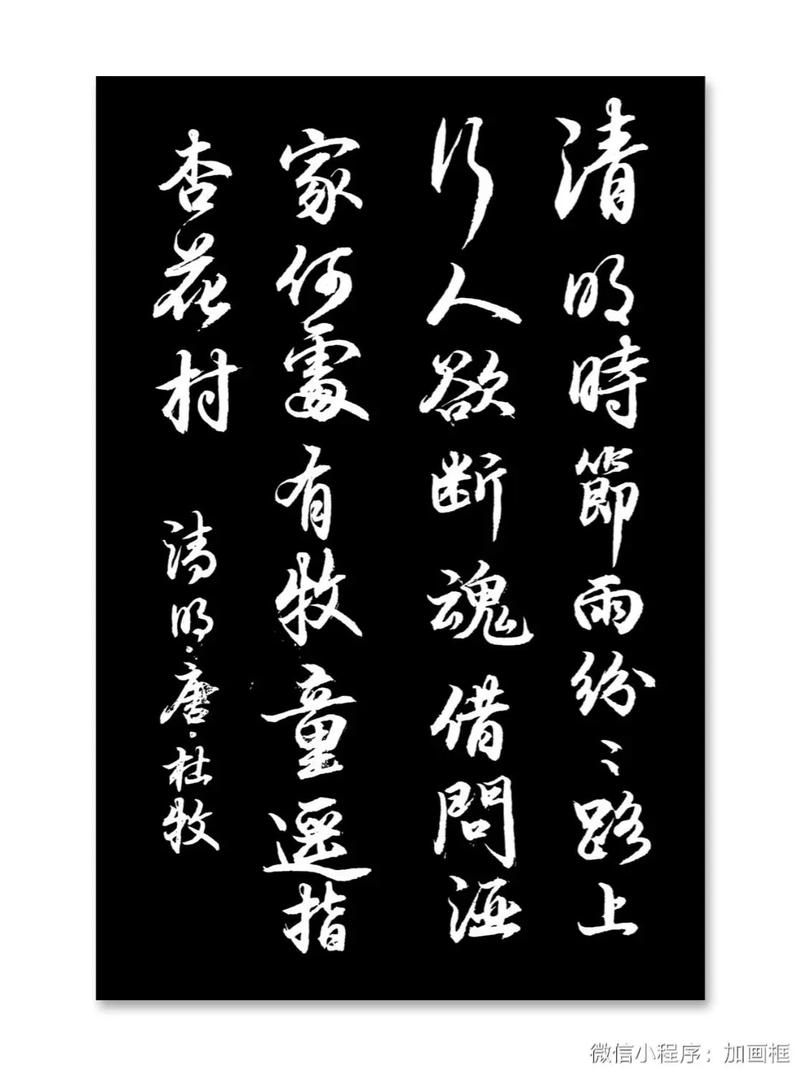 清明時節雨紛〻路上
行人欲断魂借問酒
家何處有牧童遥指
杏花村
清明·唐·杜牧
微信小程序：加画框